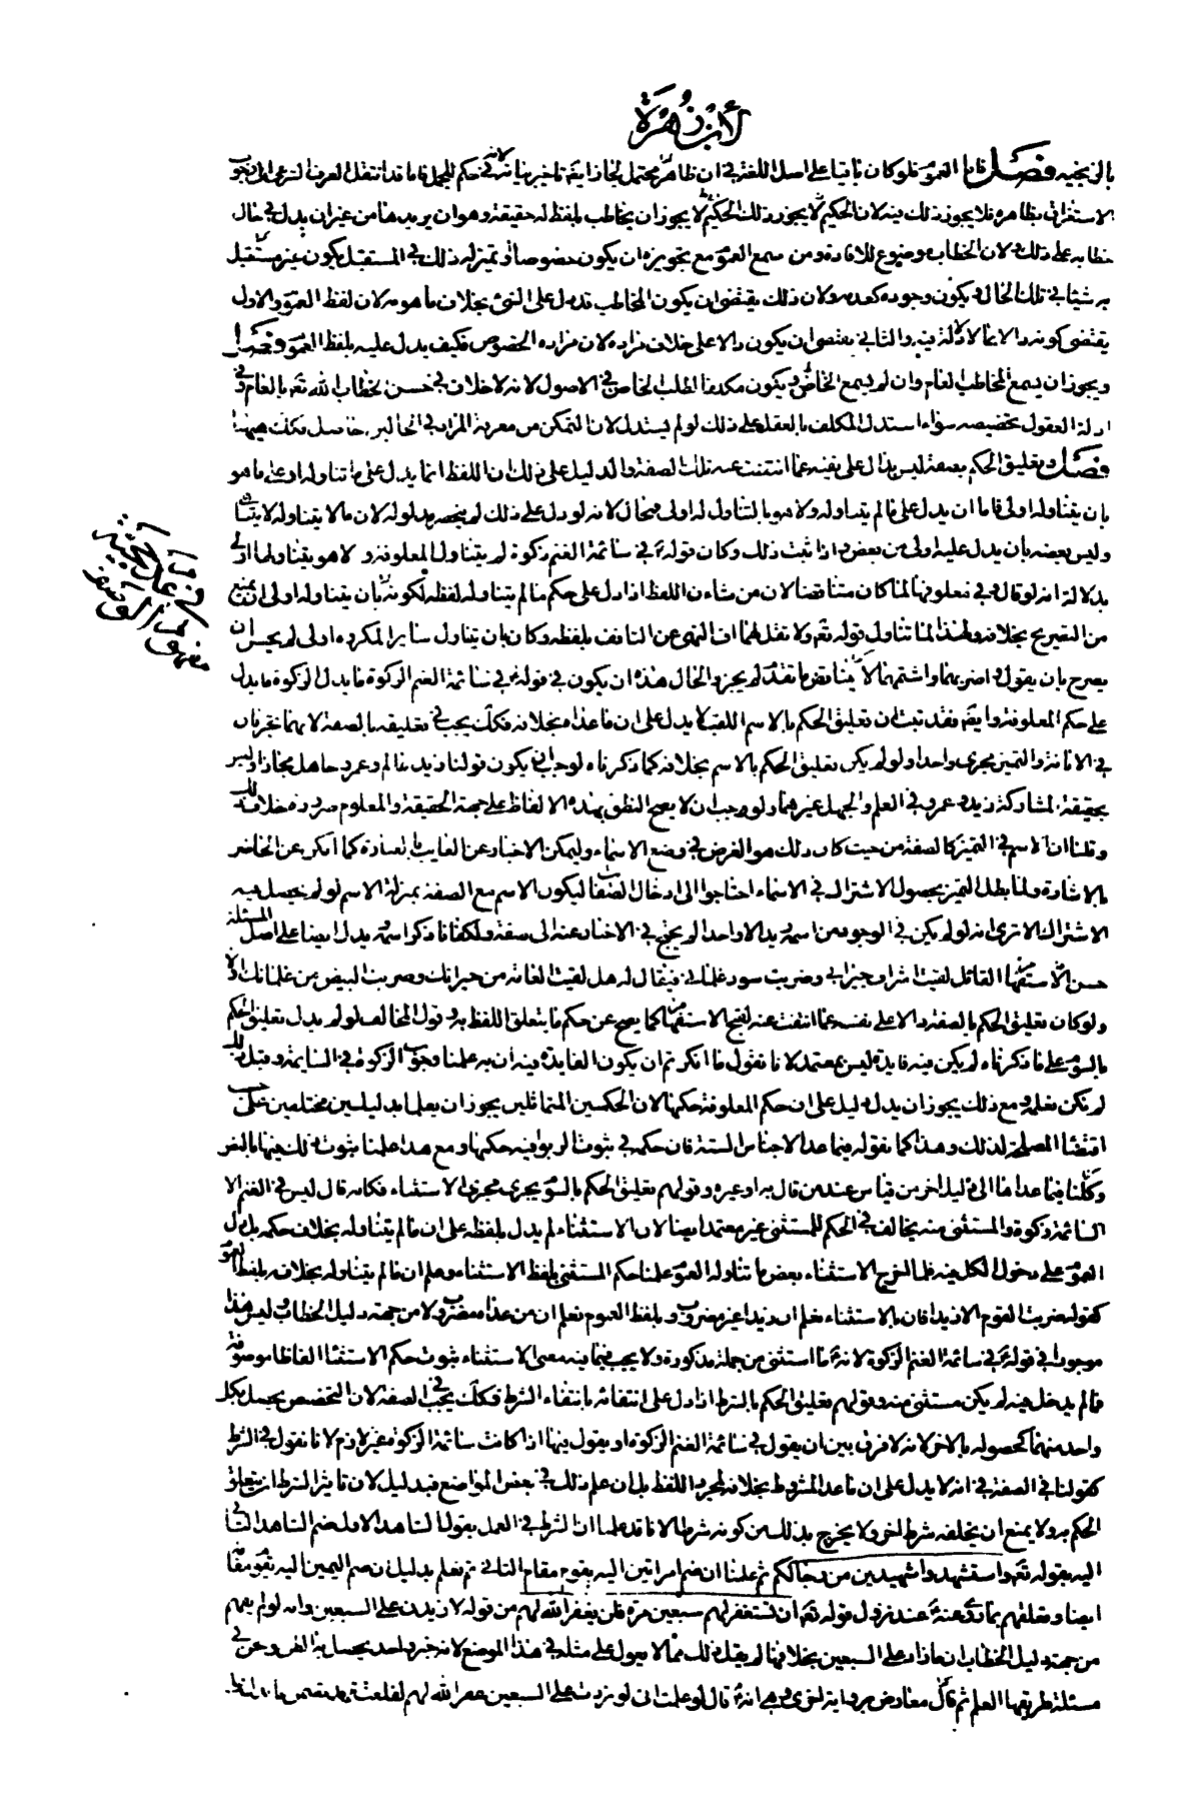 لابن زهرة
فصل فاما العموم فلو كان باقيا على اصل اللغة في ان ظاهره محتمل لجاز ايضا تاخير بيانه لانه في حكم المجمل فاما قد انتقل العرف الشرعي الى وجوب
الاستغراق بظاهره فلا يجوز ذلك فيه لان الحكيم لا يجوز ان يخاطب بلفظ له حقيقة وهو ان يريدها من غير ان يدل في حال
خطابه على ذلك ولان الخطاب وضع للافادة ومن سمع العموم مع تجويزه ان يكون مخصوصا وتميز له ذلك في المستقبل يكون غير مستقبل
به شيئا في تلك الحال ويكون وجوده كعدمه ولان ذلك يقتضي ان يكون المخاطب قد دل على الشيء بخلاف ما هو به لان لفظ العموم والاول
يقتضي كونه دالا والثاني يقتضي ان يكون دالا على خلاف مراده لان مراده الخصوص فكيف يدل عليه بلفظ العموم فصل
ويجوز ان يسمع المخاطب العام وان لم يسمع الخاص ويكون مكلفا لطلب الخاص في الاصول لانه لا خلاف في حسن خطاب الله تعالى بالعام وفي
ادلة العقول تخصيصه سواء استدل المكلف بالعقل على ذلك او لم يستدل لان التمكن من معرفة المراد في الحالين حاصل فكذلك هيهنا
فصل وتعليق الحكم بصفة ليس بدال على نفيه عما انتفت عنه تلك الصفة والدليل على ذلك ان اللفظ انما يدل على ما تناوله او على ما هو
بان يتناوله اولى فاما ان يدل على ما لم يتناوله ولا هو بالتناول له اولى فمحال لانه لو دل على ذلك لم ينحصر مدلوله لان ما لا يتناوله لا يتناهى
وليس بعضه بان يدل عليه اولى من بعض واذا ثبت ذلك وكان قوله في سائمة الغنم زكوة لم يتناول المعلوفة ولا هو بتناولها اولى
بدلالة انه لو قال وفي معلوفها لما كان متناقضا لان من شان اللفظ اذا دل على حكم ما لم يتناوله لفظه لكونه بان يتناوله اولى ان يمنع
من التصريح بخلافه ولهذا لما تناول قوله تعالى ولا تقل لهما اف النهي عن التافيف بلفظه وكان بان يتناول سائر المكروه اولى لم يحسن ان
يصرح بان يقول واضربهما واشتمهما لانه يناقض ما تقدم لم يجز والحال هذه ان يكون في قوله في سائمة الغنم الزكوة ما يدل
على حكم المعلوفة وايضا فقد ثبت ان تعليق الحكم بالاسم اللقب لا يدل على ان ما عداه بخلافه فكذلك يجب في تعليقه بالصفة لانهما يجريان
في الابانة والتمييز مجرى واحدا ولو لم يكن تعليق الحكم بالاسم بخلافه كما ذكرناه لوجب ان يكون قولنا زيد عالم وعمرو جاهل مجازا وليس
بحقيقة لمشاركة زيد وعمرو في العلم والجهل غيرهما ولوجب ان لا يصح النطق بهذه الالفاظ على جهة الحقيقة والمعلوم ضرورة خلاف ذلك
وقلنا ان الاسم في التميز كالصفة من حيث كان ذلك هو الغرض في وضع الاسماء وليمكن الاخبار عن الغايب بالعبارة كما امكن عن الحاضر
بالاشارة ولما بطل التميز بحصول الاشتراك في الاسماء احتاجوا الى ادخال الصفات ليكون الاسم مع الصفة بمنزلة الاسم لو لم يحصل فيه
الاشتراك الا ترى انه لو لم يكن في الوجود من اسمه زيد الا واحد لم يحتج في الاخبار عنه الى صفة ولكفانا ذكر اسمه ويدل ايضا على اصل المسئلة
حسن الاستفهام القائل لقيت اشراف جيراني وضربت سود غلماني فيقال له هل لقيت العامة من جيرانك وضربت البيض من غلمانك او لا
ولو كان تعليق الحكم بالصفة دالا على نفيه عما انتفت عنه لقبح الاستفهام كما يقبح عن حكم ما يتعلق اللفظ به وقول المخالف لو لم يدل تعليق الحكم
بالسوم على ما ذكرناه لم يكن فيه فايدة ليس بمعتمد لانا نقول ما انكرتم ان يكون الفايدة فيه ان به علمنا وجوب الزكوة في السايمة وقبل ذلك
لم نكن نعلمه ومع ذلك يجوز ان يدل دليل على ان حكم المعلوفة حكمها لان الحكمين المتماثلين يجوز ان يعلما بدليلين مختلفين على حسب
اقتضاء المصلحة لذلك وهذا كما نقوله فيما عدا الاجناس الستة فان حكمه في ثبوت الربوا فيه حكمها ومع هذا علمنا ثبوت ذلك فيها بالنص
وكلنا فيما عداها الى دليل اخر من قياس عند من قال به او غيره وقولهم تعليق الحكم بالسوم يجري مجرى الاستثناء فكانه قال ليس في الغنم الا
السائمة زكوة والمستثنى منه يخالف في الحكم للمستثنى غير معتمد ايضا لان الاستثناء لم يدل بلفظه على ان ما لم يتناوله بخلاف حكمه بل دل
العموم على دخول الكل فيه فلما اخرج الاستثناء بعض ما تناوله العموم علمنا حكم المستثنى بلفظ الاستثناء وعلم ان ما لم يتناوله بخلافه بلفظ العموم
كقوله ضربت القوم الا زيدا فان بالاستثناء نعلم ان زيدا غير مضروب وبلفظ العموم نعلم ان من عداه مضروب ولا من جهة دليل الخطاب وليس هذا
موجودا في قوله في سائمة الغنم الزكوة لانه ما استثنى من جملة مذكورة ولا يجب فيما فيه معنى الاستثناء ثبوت حكم الاستثناء الفاظا موصوفة
فما لم يدخل فيه لم يكن مستثنى منه وقولهم تعليق الحكم بالشرط اذا دل على انتفائه بانتفاء الشرط فكذلك يجب في الصفة لان التخصيص يحصل بكل
واحد منهما كحصوله بالاخر لانه لا فرق بين ان يقول في سائمة الغنم الزكوة او يقول فيها اذا كانت سائمة الزكوة غير لازم لانا نقول في الشرط
كقولنا في الصفة في انه لا يدل على ان ما عدا المشروط بخلافه لمجرد اللفظ بل ان علم ذلك في بعض المواضع فبدليل لان تاثير الشرط ان يتعلق
الحكم به ولا يمنع ان يخلفه شرط اخر ولا يخرج بذلك من كونه شرطا لانا قد علمنا ان الشرط في العمل بقول الشاهد الاول ضم الشاهد الثاني
اليه بقوله تعالى واستشهدوا شهيدين من رجالكم ثم علمنا ان ضم امراتين اليه يقوم مقام الثاني ثم نعلم بدليل ان ضم اليمين اليه يقوم مقامه
ايضا وتعلقهم بما روي عنه عند نزول قوله تعالى ان تستغفر لهم سبعين مرة فلن يغفر الله لهم من قوله لازيدن على السبعين وانه لو لم يفهم
من جهة دليل الخطاب ان ما زاد على السبعين بخلافها لم يقل ذلك مما لا يعول على مثله في هذا الموضع لانه خبر واحد يحصل به الظن ونحن في
مسئلة طريقها العلم ثم ذلك معارض برواية اخرى وهي انه قال لو علمت اني لو زدت على السبعين غفر الله لهم لفعلت
في ما
على عدم حجية
مفهوم الوصف